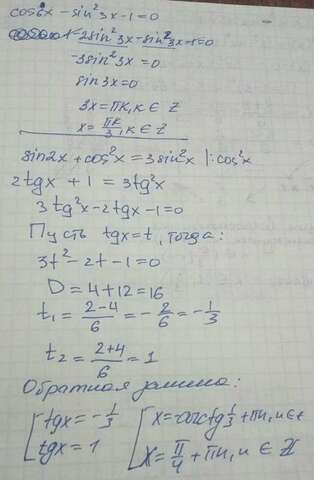 cos6x - sin²3x - 1 = 0
1 - 2sin²3x - sin²3x - 1 = 0
-3sin²3x = 0
sin3x = 0
3x = πk, k ∈ Z
x = πk/3, k ∈ Z
sin2x + cos²x = 3sin²x |: cos²x
2tgx + 1 = 3tg²x
3tg²x - 2tgx - 1 = 0
Пусть tgx = t, тогда:
3t² - 2t - 1 = 0
D = 4 + 12 = 16
t₁ = (2-4)/6 = -2/6 = -1/3
t₂ = (2+4)/6 = 1
Обратная замена:
[ tgx = -1/3 [ x = -arctg 1/3 + πn, n ∈
[ tgx = 1 [ x = π/4 + πn, n ∈ Z